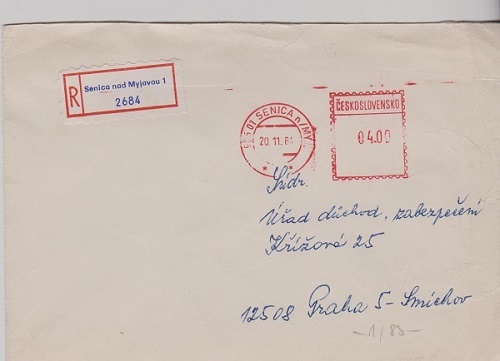 R
Senica nad Myjavou 1
2684
905 01 SENICA n/MYJ.
20.11.84
ČESKOSLOVENSKO
04.00
Súdr.
Úřad důchod. zabezpečení
Křížová 25
12508 Praha 5-Smíchov
-1/85-